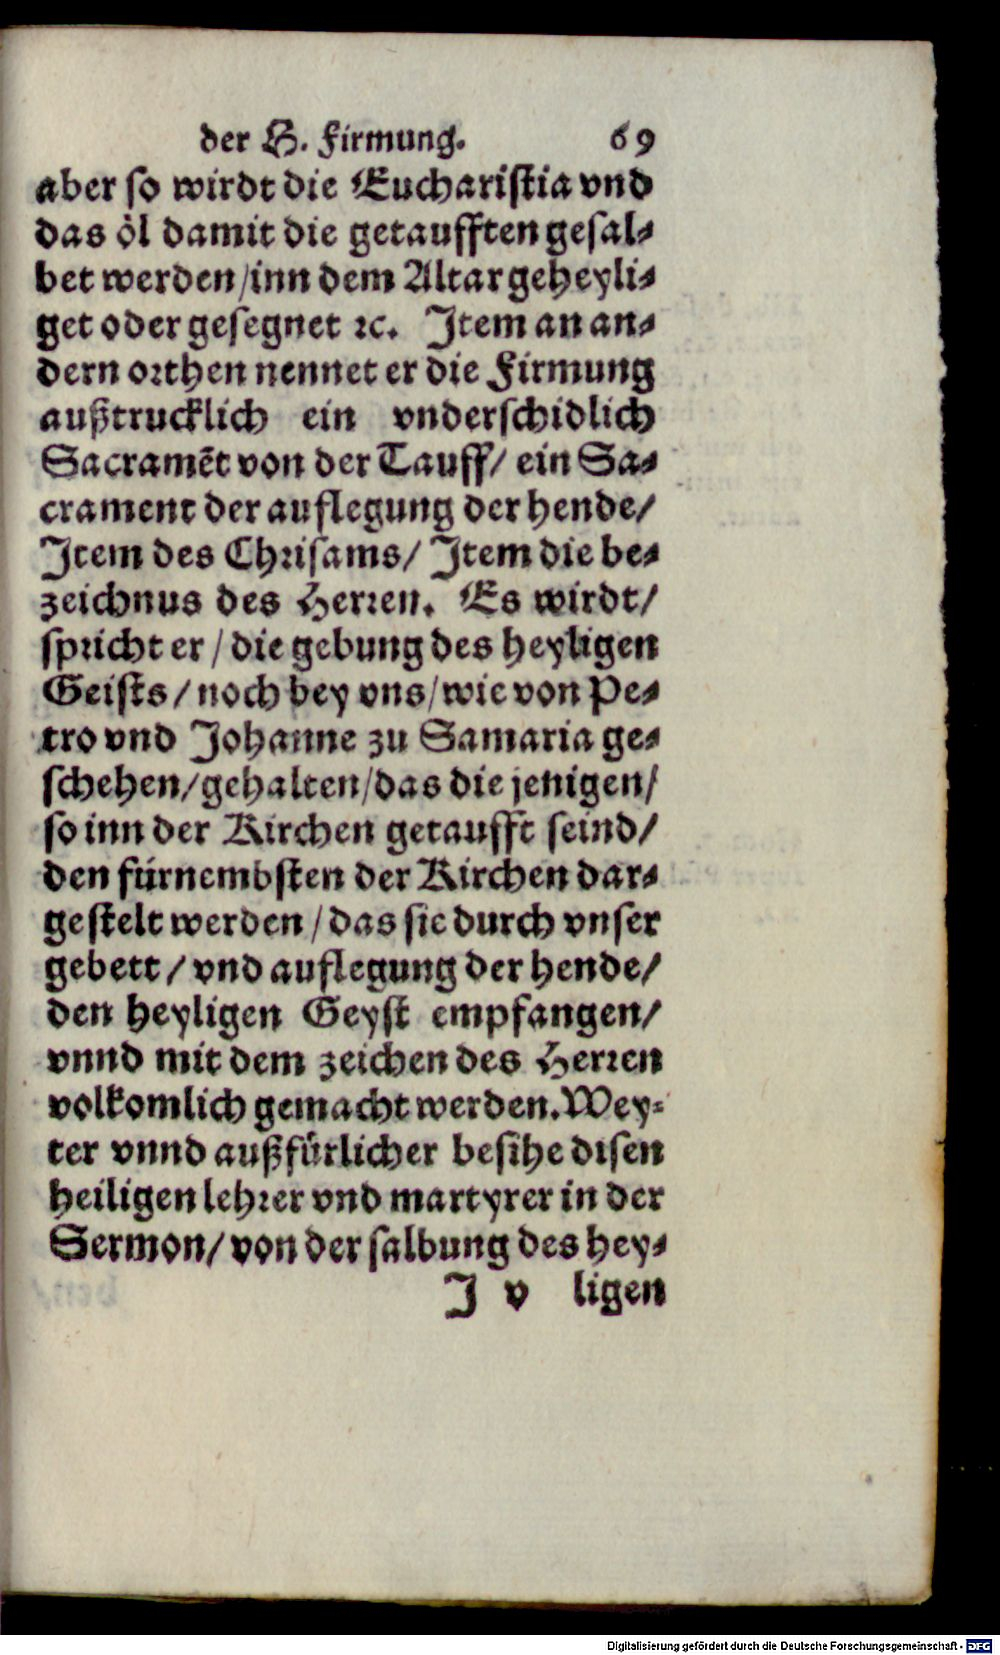 der H. Firmung. 69
aber so wirdt die Eucharistia vnd
das öl damit die getaufften gesal-
bet werden/inn dem Altar geheyli-
get oder gesegnet ꝛc. Item an an-
dern orthen nennet er die Firmung
außtrucklich ein vnderschidlich
Sacramēt von der Tauff/ ein Sa-
crament der auflegung der hende/
Item des Chrisams/ Item die be-
zeichnus des Herren. Es wirdt/
spricht er/die gebung des heyligen
Geists/noch bey vns/wie von Pe-
tro vnd Johanne zu Samaria ge-
schehen/gehalten/das die jenigen/
so inn der Kirchen getaufft seind/
den fürnembsten der Kirchen dar-
gestelt werden/das sie durch vnser
gebett/vnd auflegung der hende/
den heyligen Geyst empfangen/
vnnd mit dem zeichen des Herren
volkomlich gemacht werden. Wey-
ter vnnd außfürlicher besihe disen
heiligen lehrer vnd martyrer in der
Sermon/von der salbung des hey-
J v ligen
Digitalisierung gefördert durch die Deutsche Forschungsgemeinschaft - DFG